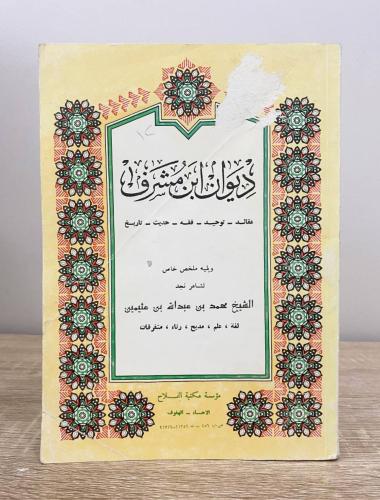 ديوان ابن مشرف
عقائد - توحيد - فقه - حديث - تاريخ
ويليه ملخص خاص
لشاعر نجد
الشيخ محمد بن عبدالله بن عثيمين
لغة ، علم ، مديح ، رثاء ، متفرقات
مؤسسة مكتبة الفلاح
الاحساء - الهفوف